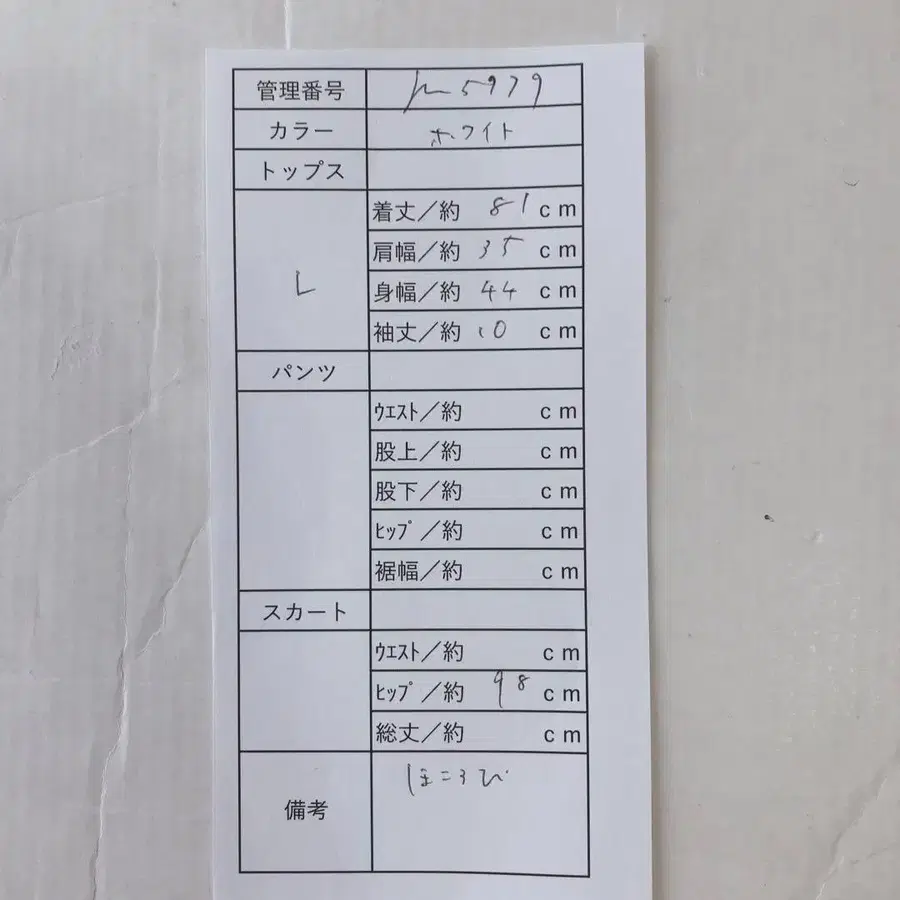 管理番号 5979
カラー ホワイト
トップス
L
着丈／約 81 cm
肩幅／約 35 cm
身幅／約 44 cm
袖丈／約 10 cm
パンツ
ｳｴｽﾄ／約 cm
股上／約 cm
股下／約 cm
ﾋｯﾌﾟ／約 cm
裾幅／約 cm
スカート
ｳｴｽﾄ／約 cm
ﾋｯﾌﾟ／約 98 cm
総丈／約 cm
備考 ほころび